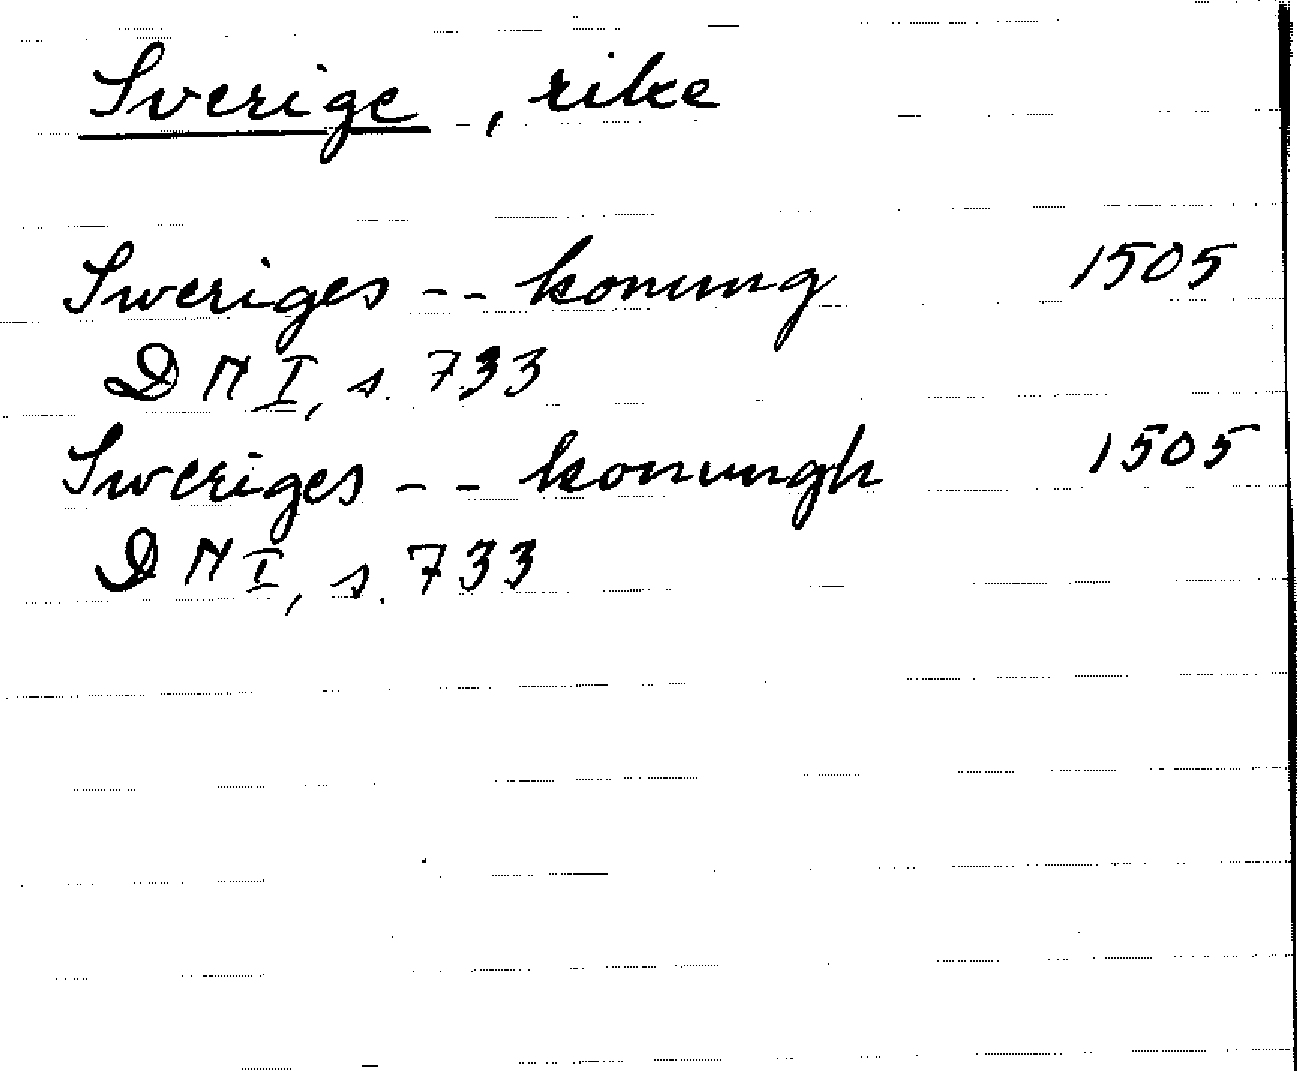 Sverige, rike
Sweriges -- konung 1505
DN I, s. 733
Sweriges -- konungh 1505
DN I, s. 733